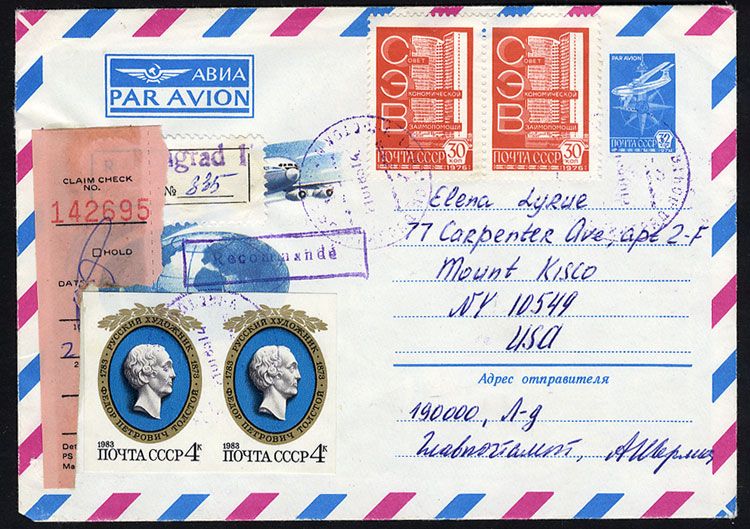 АВИА
PAR AVION
СЭВ
СОВЕТ
ЭКОНОМИЧЕСКОЙ
ВЗАИМОПОМОЩИ
30 КОП
ПОЧТА СССР
•1976•
СЭВ
СОВЕТ
ЭКОНОМИЧЕСКОЙ
ВЗАИМОПОМОЩИ
30 КОП
ПОЧТА СССР
•1976•
PAR AVION
32
ПОЧТА СССР
CLAIM CHECK
NO.
142695
HOLD
ngrad 1
№ 835
Recommandé
Elena Lyrue
77 Carpenter Ave, apt 2-F
Mount Kisco
NY 10549
USA
Адрес отправителя
190000, Л-д
Главпочтамт,
РУССКИЙ ХУДОЖНИК
1783 1873
ФЕДОР ПЕТРОВИЧ ТОЛСТОЙ
1983
ПОЧТА СССР 4к
РУССКИЙ ХУДОЖНИК
1783 1873
ФЕДОР ПЕТРОВИЧ ТОЛСТОЙ
1983
ПОЧТА СССР 4к
PS